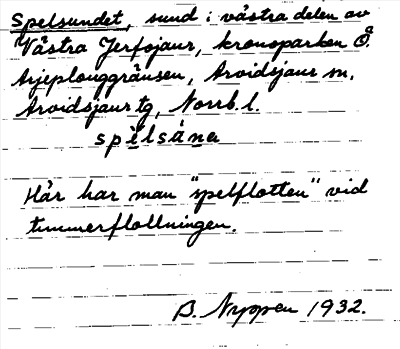 Spelsundet, sund i västra delen av
Västra Jerfojaur, kronoparken Ö.
Arjeplouggränsen, Arvidsjaur sn,
Arvidsjaur tg, Norrb. l.
spelsäna
Här har man "spelflotten" vid
timmerflottningen.
B. Nyppen 1932.